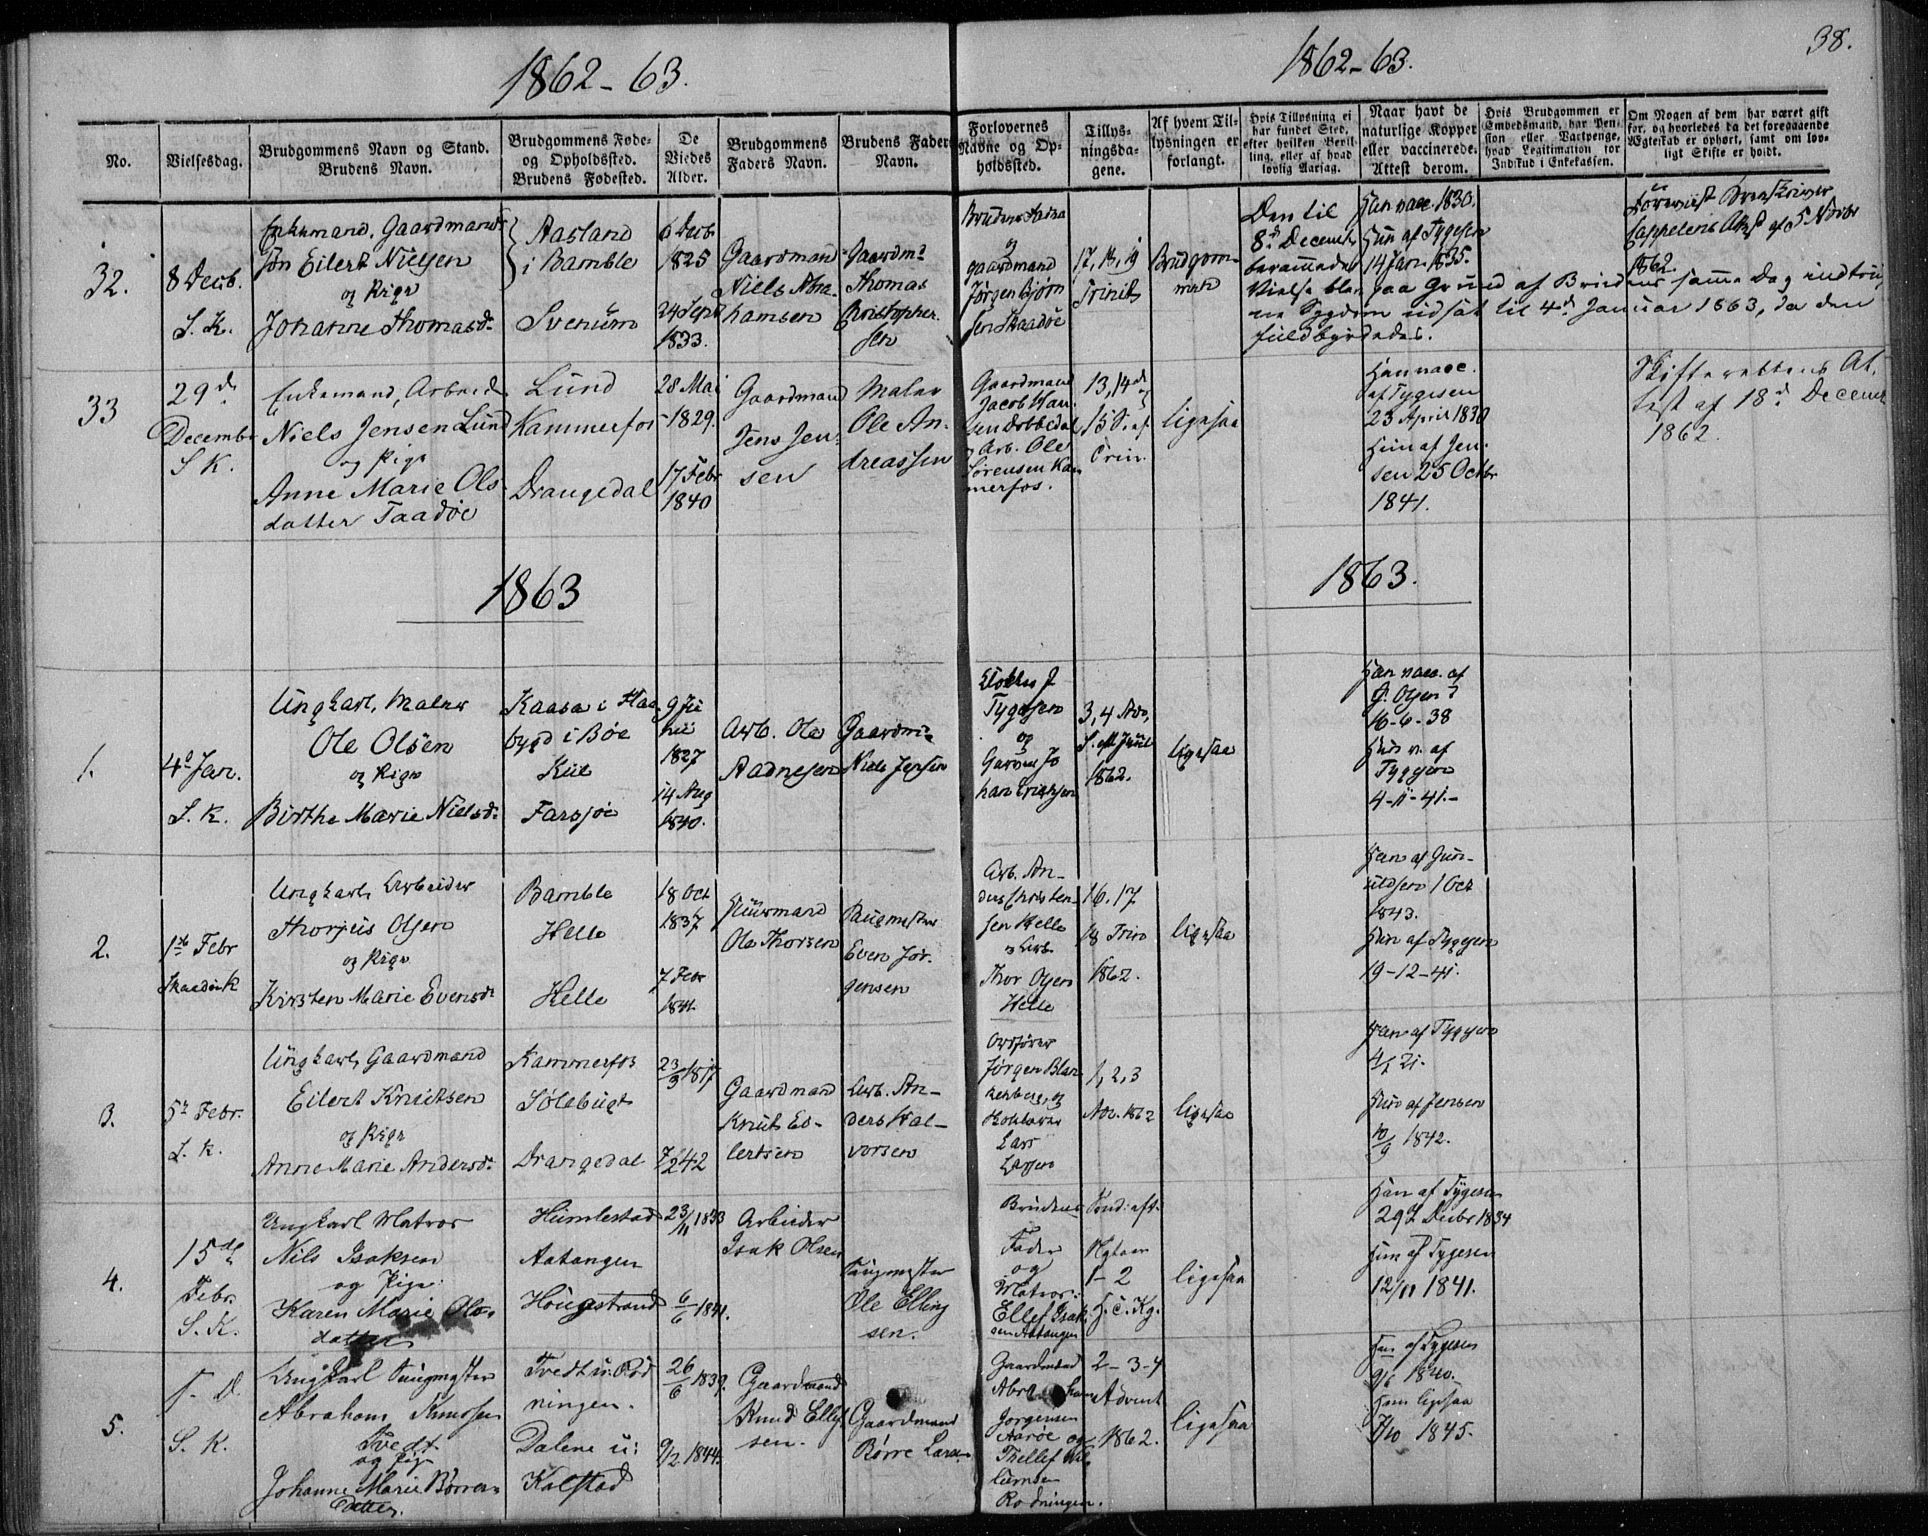 1862-63.
1862-63.
38.
No.
Vielsesdag.
Brudgommens Navn og Stand.
Brudens Navn.
Brudgommens Føde-
og Opholdssted.
Brudens Fødested.
De
Viedes
Alder.
Brudgommens
Faders Navn.
Brudens Faders
Navn.
Forlovernes
Navne og Op-
holdssted.
Tillys-
ningsda-
gene.
Af hvem Til-
lysningen er
forlangt.
Hvis Tillysning ei
har fundet Sted,
efter hvilken Bevil-
ling, eller af hvad
lovlig Aarsag.
Naar havt de
naturlige Kopper
eller vaccinerede.
Attest derom.
Hvis Brudgommen er
Embedsmand, har Pen-
sion eller Vartpenge,
hvad Legitimation for
Indskud i Enkekassen.
Om Nogen af dem har været gift
før, og hvorledes da det foregaaende
Ægteskab er ophørt, samt om lov-
ligt Skifte er holdt.
32.
8 Decb.
S. K.
Enkemand, Gaardmand
Jøn Eilert Nielsen
og Pige
Johanne Thomasd.
Aasland
i Bamble
Svenum
6 Decb.
1825
24 Sept
1833.
Gaardmand
Niels Abra-
hamsen
Gaardm.
Thomas
Christopher-
sen
Brudens Fader
og
Gaardmand
Jørgen Bjørn
sen Skaadøe
17, 18, 19
Trinit.
Brudgom-
men
Den til
8de December
berammede
Vielse blev paa Grund af Brudens samme Dag indtruf
ne Sygdom udsat til 4de Januar 1863, da den
fuldbyrdedes.
Han vacc. 1830.
Hun af Tygesen
14 Jan. 1835.
Foreviist Sorenskriver
Cappelens Attest af 5 Novbr
1862.
33
29de
December
S K.
Enkemand, Arbeid.
Niels Jensen Lund
og Pige
Anne Marie Ols
datter Taadøe
Lund
Kammerfos
Drangedal
28 Mai
1829.
17 Febr
1840
Gaardmand
Jens Jen-
sen
Maler
Ole An-
dreassen
Gaardmand
Jacob Han-
sen Dobbedal
og Arb. Ole
Sørensen Kam
merfos.
13, 14 og
15 S. af
Trin.
ligesaa
Han vacc.
af Tygesen
23 April 1830
Hun af Jen-
sen 25 Octbr
1841.
Skifterettens At-
test af 18de Decemb
1862.
1863
1863.
1.
4de Jan.
S. K.
Ungkarl, Maler
Ole Olsen
og Pige
Birthe Marie Nielsd.
Kaasa i Hau
bygd i Bøe
Kiil
Farsjøe
9 Ju
nii
1827
14 Aug
1840.
Arb. Ole
Aadnesen
Gaardm.
Niels Jensen
Klokker J
Tygesen
og
Garver Jo
han Erichsen
3, 4 Adv,
S. eft Juul
1862.
ligesaa
Han vacc. af
G. Olsen
16-6-38
Hun v. af
Tygesen
4-11-41.-
2.
1ste Febr
Skaadø K
Ungkarl, Arbeider
Thorjus Olsen
og Pige
Kirsten Marie Evensd.
Bamble
Helle
Helle
18 Oct
1837
7 Febr
1841.
Huusmand
Ole Thorsen
Baugmester
Even Jør-
gensen
Arb. An-
ders Christen-
sen Helle
og Arb.
Thor Olsen
Helle
16, 17
18 Trin
1862.
ligesaa
Han af Gun-
uldsen 1 Oct
1843.
Hun af Tygesen
19-12-41.
3.
5te Febr.
S. K.
Ungkarl, Gaardmand
Eilert Knutsen
og Pige
Anne Marie Andersd.
Kammerfos
Sølebugt
Drangedal
23/3 1817
7/2 42
Gaardmand
Knut Ei-
lertsen
Arb. An-
ders Hal-
vorsen
Ordfører
Jørgen Blan
kenberg, og
Lars
Larsen
1, 2, 3
Adv. 1862
ligesaa
Han af Tygesen
4/1 21.
Hun af Jensen
10/9 1842.
4.
15de
Febr.
S. K.
Ungkarl Matros
Nils Isaksen
og Pige
Karen Marie Ols-
datter
Humlestad
Aatangen
Hougstrand
23/11 1833
6/6 1841.
Arbeider
Isak Olsen
Baugmester
Ole Elling
sen.
Brudens
Fader
og
Matros
Ellef Isak
sen Aatangen
Sønd: eft.
Nytaar
1-2
H. 3. Kg.
ligesaa
Han af Tygesen
29 Decbr 1834
Hun af Tygesen
12/11 1841.
5.
S. K.
Ungkarl Baugmester
Abraham Knutsen
Tvedt
og Pige
Johanne Marie Børres
datter.
Tvedt u: Rød
ningen.
Dalene u:
Kalstad
26/6 1839.
9/2 1844.
Gaardmand
Knud Ellef
sen.
Gaardmand
Børre Larsen
Gaardmand
Abraham
Jørgensen
Aarøe og
Thellef Wil
lumsen
Rødningen.
2-3-4
Advent
1862.
ligesaa
Han af Tygesen
9/6 1840.
Hun ligesaa
7/10 1845.